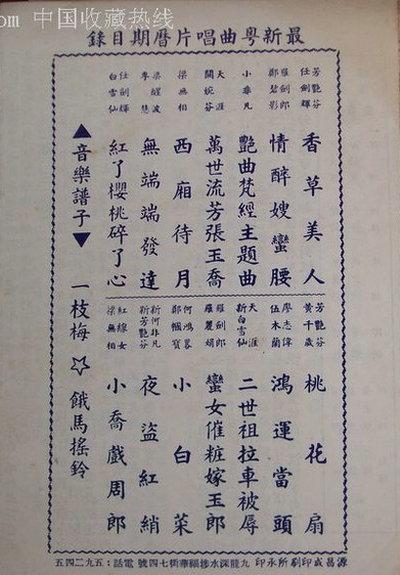 中国收藏热线
最新粵曲唱片曆期目錄
芳艷芬
任劍輝
香草美人
羅劍郎
鄭碧影
情醉嫂蠻腰
艷曲梵經主題曲
天涯
關婉芬
萬世流芳張玉喬
梁無相
西廂待月
梁耀波
李慧
無端端發達
任劍輝
白雪仙
紅了櫻桃碎了心
芳艷芬
黃千歲
桃花扇
廖志偉
伍木蘭
鴻運當頭
天涯
新白雪仙
二世祖拉車被辱
羅劍郎
羅麗娟
蠻女催粧嫁玉郎
何鴻畧
鄭幗寶
小白菜
新何非凡
新芳艷芬
夜盜紅綃
紅線女
梁無相
小喬戲周郎
▲音樂譜子▼ 一枝梅 ☆ 餓馬搖鈴
源昌成印刷所承印 九龍深水埗福華街七四號 電話:五九二四五